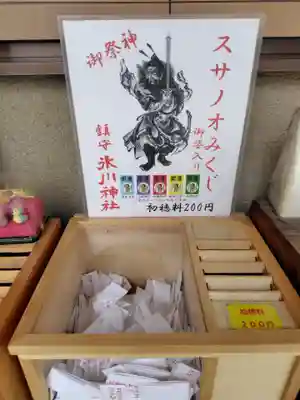 スサノオみくじ
御姿入り
御祭神
鎮守 氷川神社
初穂料200円
初穂料
200円